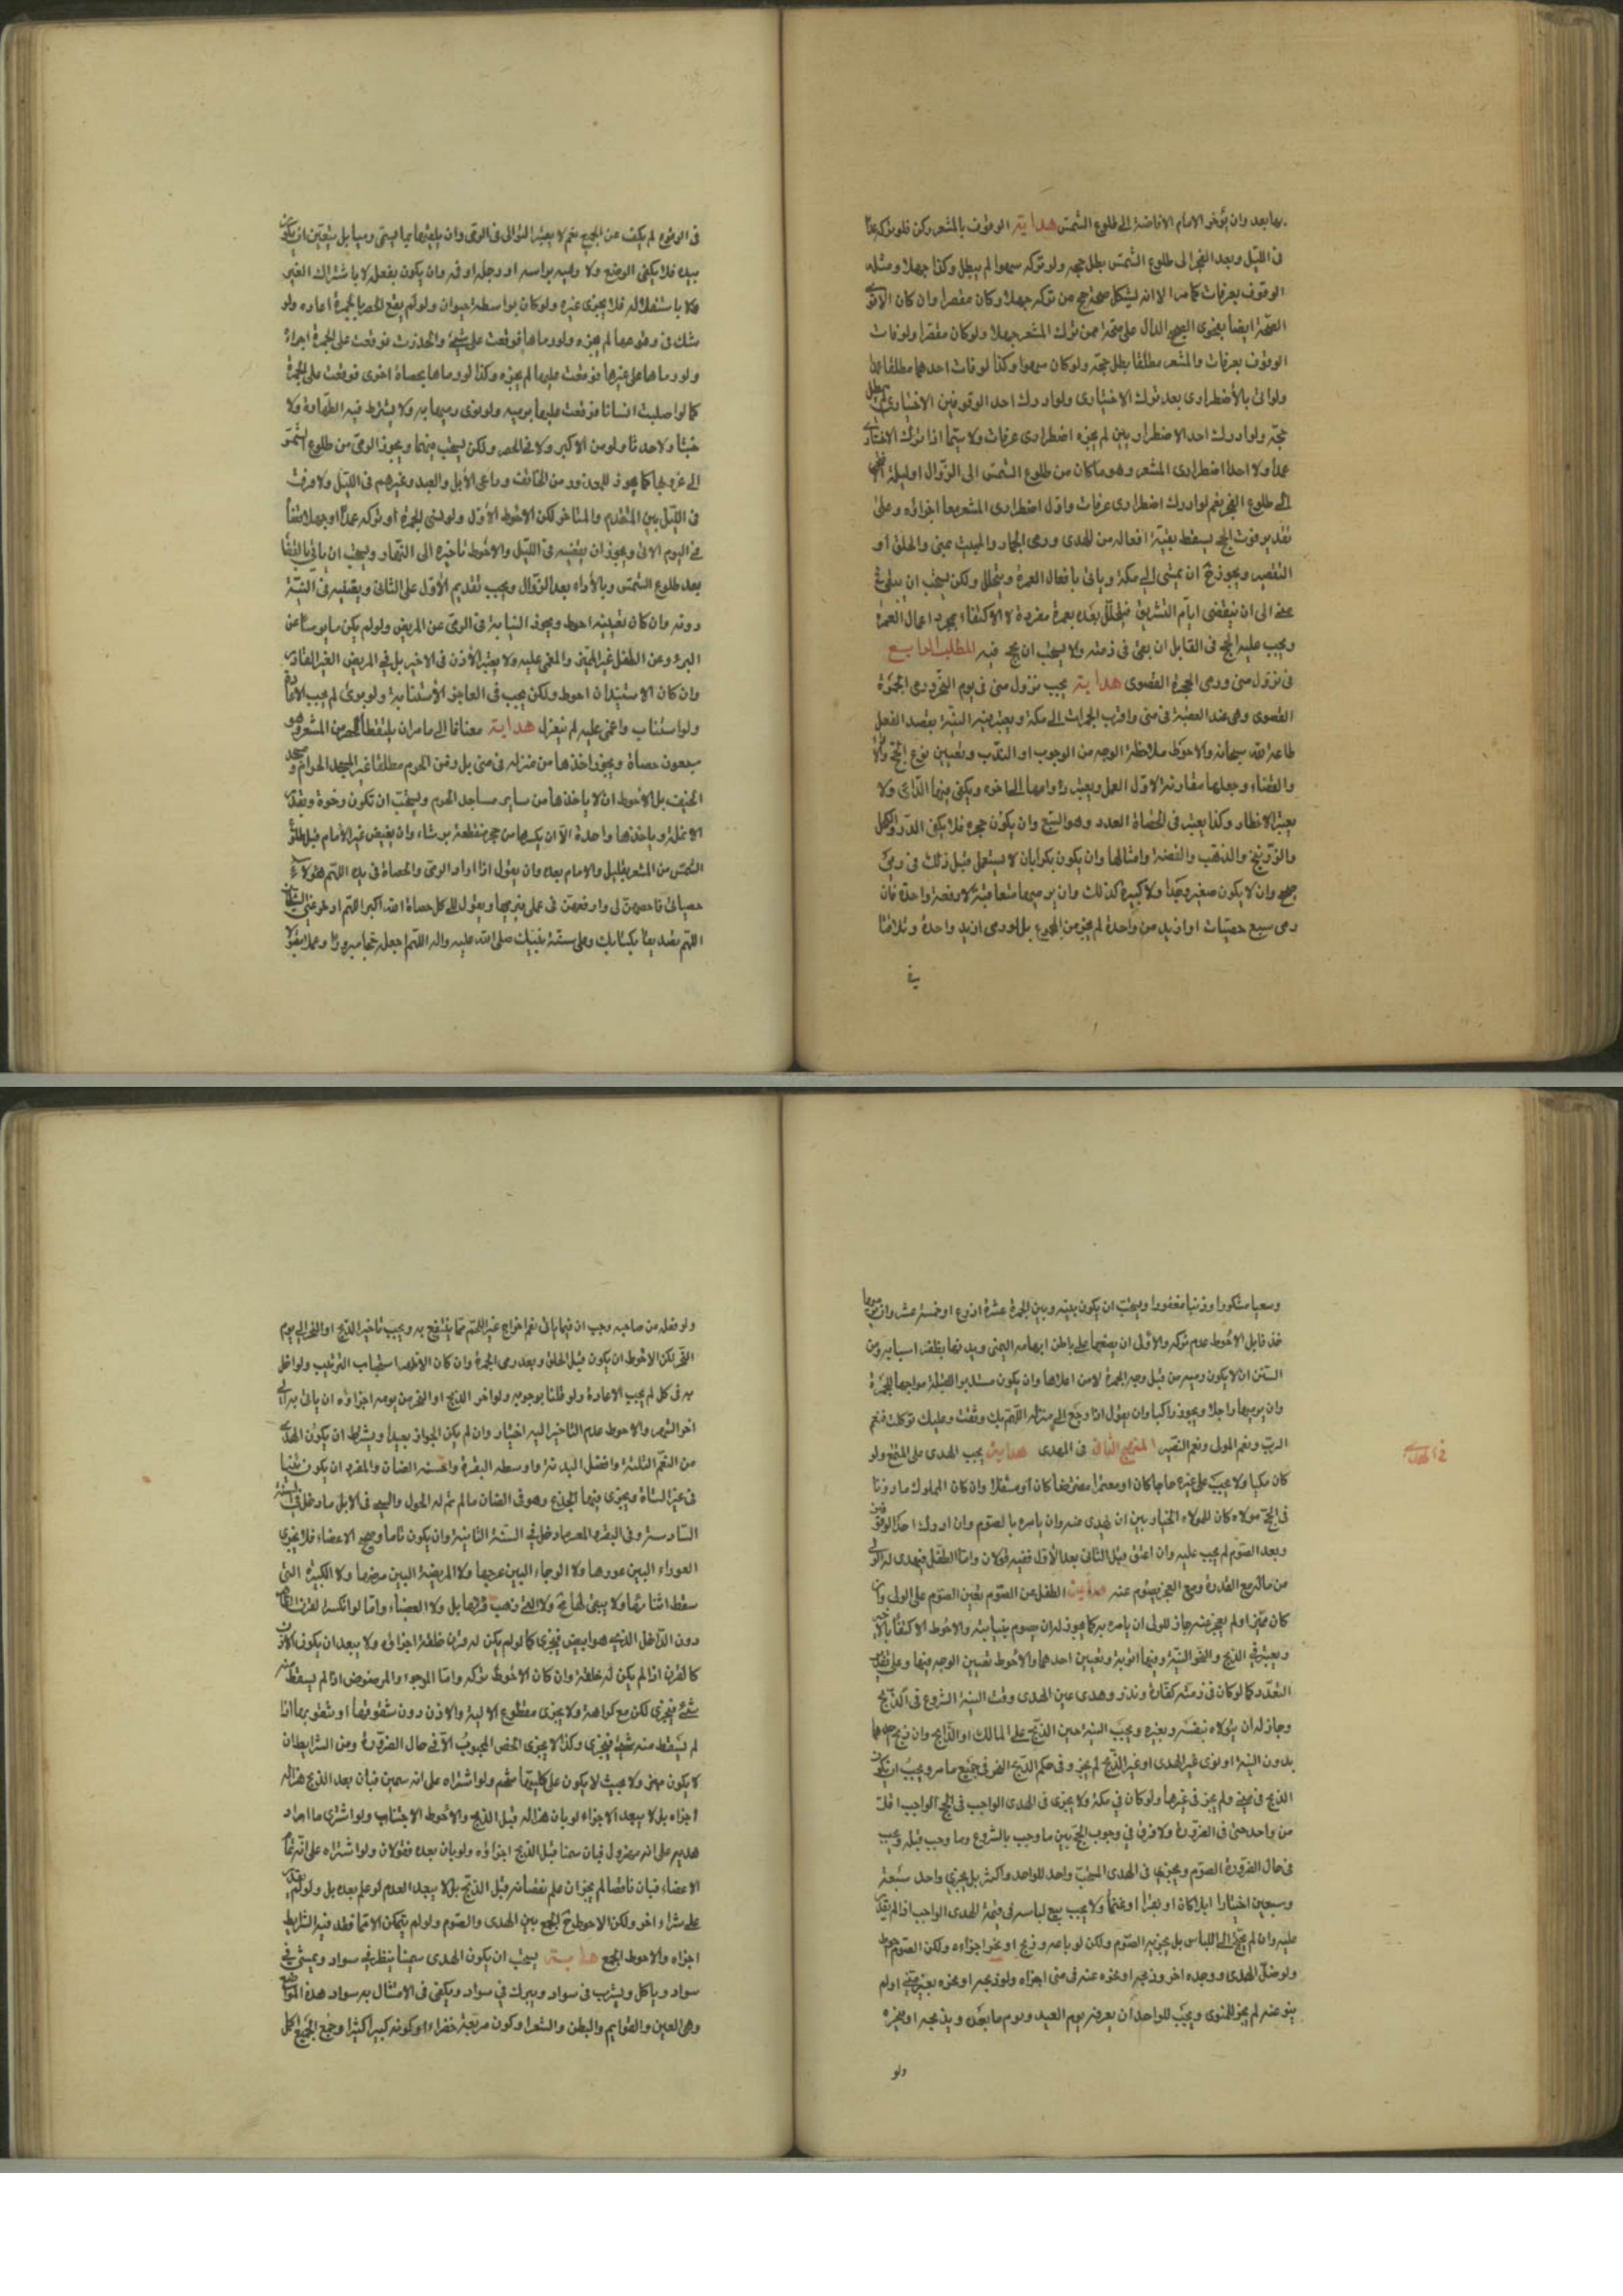 بها بعد وان يؤخر الامام الافاضة الى طلوع الشمس هداية الوقوف بالمشعر ركن فلو تركه عمدا
فى الليل وبعد الفجر الى طلوع الشمس بطل حجه ولو تركه سهوا لم يبطل وكذا جهلا ومثله
الوقوف بعرفات كما مر الا انه ليشكل صحة حج من تركه جهلا وكان مقصرا وان كان الاقوى
الصحة ايضا بفحوى الصحيح الدال على صحة حج من ترك المشعر جهلا ولو كان مقصرا ولو فات
الوقوف بعرفات والمشعر مطلقا بطل حجه ولو كان سهوا وكذا لو فات احدهما مطلقا عمدا
ولو اتى بالاضطرارى بعد ترك الاختيارى ولو ادرك احد الوقوفين الاختياريين لم يبطل
حجه ولو ادرك احد الاضطراريين لم يجزه اضطرارى عرفات ولا سيما اذا ترك الاختيارى
عمدا ولا احد اضطرارى المشعر وهو ما كان من طلوع الشمس الى الزوال او ليلة النحر
الى طلوع الفجر نعم لو ادرك اضطرارى عرفات واول اضطرارى المشعر معا اجزائه وعلى
تقدير فوت الحج يسقط بقية افعاله من الهدى ورمى الجمار والمبيت بمنى والحلق او
التقصير ويجوز ح ان يمشى الى مكة وياتى بافعال العمرة ويتحلل ولكن يستحب ان يبقى فى
منى الى ان ينقضى ايام التشريق فيتحلل بعده بعمرة مفردة لا الاكتفاء بمجرد اعمال العمرة
ويجب عليه الحج فى القابل ان بقى فى ذمته ولا يستحب ان يحج فيه المطلب الرابع
فى نزول منى ورمى الجمرة القصوى هداية يجب نزول منى فى يوم النحر ورمى الجمرة
القصوى وهى عند العقبة فى منى واقرب الجمرات الى مكة ويعتبر فيه النية بقصد الفعل
طاعة لله سبحانه والاحوط ملاحظة الوجه من الوجوب او الندب وتعيين نوع الحج والاداء
والقضاء وجعلها مقارنة لاول العمل ويعتبر دوامها الى اخره ويكفى فيها الداعى ولا
يعتبر الاخطار وكذا يعتبر فى الحصاة العدد وهو السبع وان يكون حجرا فلا يكفى المدر والكحل
والزرنيخ والذهب والفضة وامثالها وان يكون بكرا بان لا يستعمل قبل ذلك فى رمى
صحيح وان لا يكون صغيرة جدا ولا كبيرة كذلك وان يرميها متعاقبة لا دفعة واحدة فان
رمى سبع حصيات او ازيد من واحدة لم يجز من المجموع بل لو رمى ازيد واحدة وتلاقتا
فى
فى الوقوع لم يكف عن الجميع نعم لا يعتبر التوالى فى الرمى وان يلقيها بما يسمى رميا بل يتعين ان يكون
بيده فلا يكفى الوضع ولا رميه براسه او رجله او فه وان يكون بفعله لا باشتراك الغير
ولا باستقلاله فلا يجزى غيره ولو كان بواسطة حيوان ولو لم يقع الحصى بالجمرة اعاده ولو
شك فى وقوعها لم يجزه ولو رماها فوقعت على شئ وانحدرت فوقعت على الجمرة اجزاء
ولو رماها على غيرها فوقعت عليها لم يجزه وكذا لو رماها بحصاة اخرى فوقعت على الجمرة
كما لو اصابت انسانا فوقعت عليها برميه ولو نوى رميها به ولا يشترط فيه الطهارة ولا
خبثا ولا حدثا ولو من الاكبر ولا فى الحصى ولكن يستحب فيهما ويجوز الرمى من طلوع الشمس
الى غروبها كما يجوز للمعذور من الخائف وراعى الابل والعبد وغيرهم فى الليل ولا فرق
فى الليل بين المتقدم والمتاخر لكن الاحوط الاول ولو نسى الجمرة او تركه عمدا او جهلا قضا
فى اليوم الاتى ويجوز ان يقضيه فى الليل والاحوط تاخيره الى النهار ويستحب ان ياتى بالقضا
بعد طلوع الشمس وبالاداء بعد الزوال ويجب تقديم الاول على الثانى ويقضيه فى النية
دونه وان كان تعيينه احوط ويجوز النيابة فى الرمى عن المريض ولو لم يكن مايوسا عن
البرء وعن الطفل غير المميز والمغمى عليه ولا يعتبر الاذن فى الاخير بل فى المريض الغير القادر
وان كان الاستيذان احوط ولكن يجب فى العاجز الاستنابة ولو برئ لم يجب الاعادة
ولو استناب واغمى عليه لم ينعزل هداية معنا الى ما مر ان يلتقط الحصى من المشعر وهو
سبعون حصاة ويجوز اخذها من منزله فى منى بل ومن الحرم مطلقا غير المسجد الحرام ومسجد
الخيف بل الاحوط ان لا ياخذها من ساير مساجد الحرم ويستحب ان تكون رخوة وبقدر
الانملة وياخذها واحدة الا ان يكسرها من حجر منقطة برشاء وان يفيض غير الامام قبل طلوع
الشمس من المشعر بقليل والامام بعده وان يقول اذا اراد الرمى والحصاة فى يده اللهم هؤلاء
حصياتى فاحصهن لى وارفعهن فى عملى فيرميها ويقول لكل حصاة الله اكبر اللهم ادحر عنى الشيطان
اللهم تصديقا بكتابك وعلى سنة نبيك صلى الله عليه واله اللهم اجعله حجا مبرورا وعملا مقبولا
وسعيا مشكورا وذنبا مغفورا ويستحب ان يكون بينه وبين الجمرة عشرة اذرع او خمسة عشر وان يرميها
خذفا بل الاحوط عدم تركه والاولى ان يضعها على باطن ابهامه اليمنى ويدفعها بظفر السبابة ومن
السنن ان يكون رميه من قبل وجه الجمرة لا من اعلاها وان يكون مستدبر القبلة مواجها للجمرة
وان يرميها راجلا ويجوز راكبا وان يقول اذا رجع الى منزله اللهم بك وثقت وعليك توكلت فنعم
الرب ونعم المولى ونعم النصير المنهج الثانى فى الهدى هداية يجب الهدى على المتمتع ولو
كان مكيا ولا يجب على غيره حاجا كان او معتمرا مفترضا كان او متنفلا وان كان المملوك ماذونا
فى الحج مولاه كان للمولى الخيار بين ان يهدى عنه وان يامره بالصوم وان ادرك احد الوقوفين
وبعد الصوم لم يجب عليه وان اعتق قبل الثانى بعد الاول ففيه قولان واما الطفل فيهدى له الولى
من ماله مع القدرة ومع العجز يصوم عنه هداية الطفل عن الصوم يتعين الصوم على الولى وان
كان مميزا ولم يعجز عنه جاز للولى ان يامره به كما يجوز له ان يصوم نيابة والاحوط الاكتفاء بالاخير
ويعتبر فى الذبح والنحر النية وفيهما القربة وتعيين احدهما والاحوط تعيين الوجه فيها وعلى تقدير
التعدد كما لو كان فى ذمته كفارة ونذر وهدى عين الهدى وقت النية الشروع فى الذبح
وجاز له ان يتولاه بنفسه وبغيره ويجب النية حين الذبح على المالك او الذابح وان ذبح
بدون النية او نوى غير الهدى او غير الذبح لم يجز وفى حكم الذبح النحر فى جميع ما مر ويجب ان يكون
الذبح فى منى ولم يجز فى غيرها ولو كان فى مكة ولا يجزى فى الهدى الواجب فى الحج الواجب اقل
من واحد حتى فى الضرورة ولا فرق فى وجوب الحج بين ما وجب بالشروع وما وجب قبله ويجب
فى حال الضرورة الصوم ويجزى فى الهدى المستحب واحد للواحد واكثر بل يجزى واحد سبعة
وسبعين اختيارا ابلا كان او بقرا او غنما ولا يجب بيع لباسه فى قيمة الهدى الواجب اذا لم يقدر
عليه وان لم يحتج الى اللباس بل يجزيه الصوم ولكن لو باعه وذبح او نحر اجزاءه ولكن الصوم احوط
ولو ضل الهدى ووجده اخر وذبحه او نحره عنه فى منى اجزاه ولو ذبحه او نحره بغير منى او لم
ينو عنه لم يجز للمنوى ويجب للواجد ان يعرفه يوم العيد ويوم ما بعده ويذبحه او ينحره
ولو
فى الهدى
ولو فعله من صاحبه وجب ان فيما ياتى نعم اخراج غير اللحم مما ينتفع به ويجب تاخير الذبح او النحر الى يوم
النحر لكن الاحوط ان يكون قبل الحلق وبعد رمى الجمرة وان كان الاظهر استحباب الترتيب ولو اخل
به فى كل لم يجب الاعادة ولو قلنا بوجوبه ولو اخر الذبح او النحر من يومه اجزاؤه ان ياتى به الى
اخر الشهر والاحوط عدم التاخير اليه اختيار وان لم يكن الجواز بعيدا ويشترط ان يكون الهدى
من النعم الثلثة وافضل البدنة واوسطه البقرة واخسه الضان والمعز وان يكون ثنيا
فى غير الشاة ويجزى فيها الجذع وهو فى الضان ما لم يتم له الحول والثنى فى الابل ما دخل فى السنة
السادسة وفى البقر والمعز ما دخل فى السنة الثانية وان يكون تاما وصحيح الاعضاء فلا يجزى
العوراء البين عورها ولا العرجاء البين عرجها ولا المريضة البين مرضها ولا الكبيرة التى
سقط اثنائها ولا يبقى لها مخ ولا التى ذهب قرنها بل ولا العضباء واما لو انكسر القرن الظاهر
دون الداخل الذى هو ابيض فيجزى كما لو لم يكن له قرن خلقة اجزائه ولا يبعد ان يكون الاذن
كالقرن اذا لم يكن له خلقة وان كان الاحوط تركه واما الموجوء والمرضوض اذا لم يسقط منه
شئ فيجزى لكن مع كراهة ولا يجزى مقطوع الالية والاذن دون شقوقها او مثقوبها اذا
لم يسقط منه شئ فيجزى وكذا لا يجزى الخصى المجبوب الا فى حال الضرورة ومن الشرائط ان
لا يكون مهزولا بحيث لا يكون على كليتها شحم ولو اشتراه على انه سمين فبان بعد الذبح هزاله
اجزاه بل لا يبعد الاجزاء لو بان هزاله قبل الذبح والاحوط الاجتناب ولو اشترى ما اراد
هديه على انه مهزول فبان سمنا قبل الذبح اجزاؤه ولو بان بعده فقولان ولو اشتراه على انه تمام
الاعضاء فبان ناقصا لم يجز وان علم نقصانه قبل الذبح بل لا يبعد العدم لو علم بعده بل ولو لم يقدر
على شراء اخر ولكن الاحوط ح الجمع بين الهدى والصوم ولو لم يتمكن الا مما فقد فيه الشرايط
اجزاه والاحوط الجمع هداية يستحب ان يكون الهدى سمينا ينظر فى سواد ويمشى فى
سواد وياكل ويشرب فى سواد ويبرك فى سواد ويكفى فى الامتثال به سواد هذه المواضع
وهى العين والقوايم والبطن والشعر او كون مرتعه خضراء او كونه كبيرا كثيرا وجمع الجميع اكمل